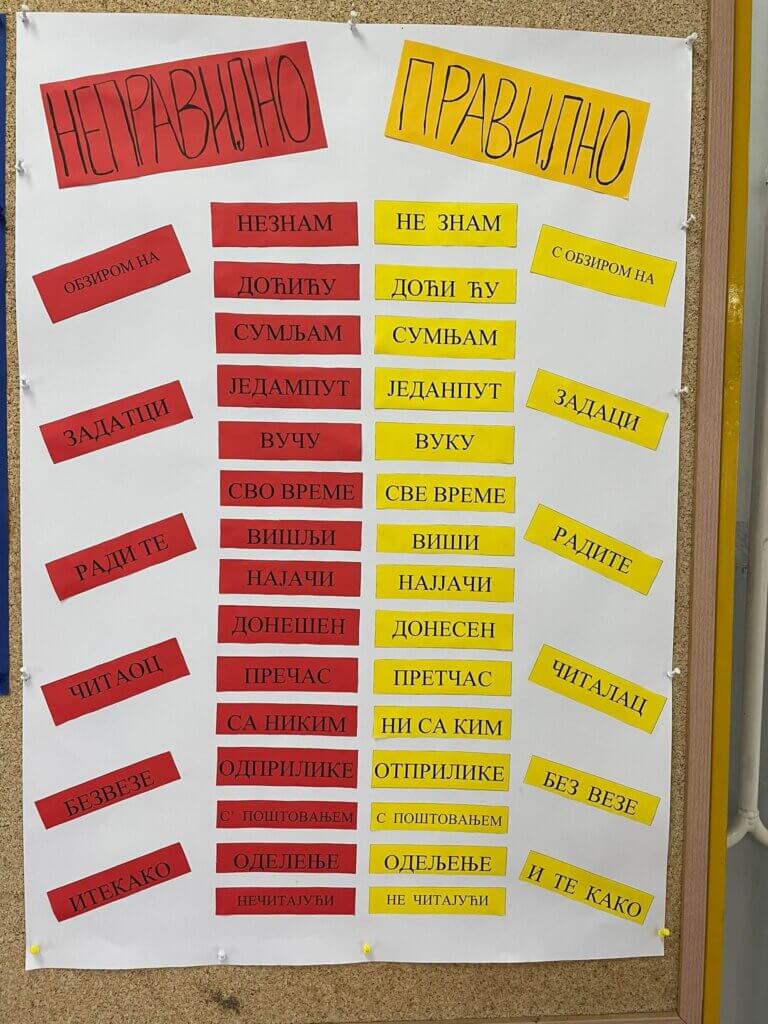 НЕПРАВИЛНО
ПРАВИЛНО
НЕЗНАМ
НЕ ЗНАМ
ОБЗИРОМ НА
С ОБЗИРОМ НА
ДОЋИЋУ
ДОЋИ ЋУ
СУМЉАМ
СУМЊАМ
ЈЕДАМПУТ
ЈЕДАНПУТ
ЗАДАТЦИ
ЗАДАЦИ
ВУЧУ
ВУКУ
СВО ВРЕМЕ
СВЕ ВРЕМЕ
ВИШЉИ
ВИШИ
РАДИ ТЕ
РАДИТЕ
НАЈАЧИ
НАЈЈАЧИ
ДОНЕШЕН
ДОНЕСЕН
ЧИТАОЦ
ЧИТАЛАЦ
ПРЕЧАС
ПРЕТЧАС
СА НИКИМ
НИ СА КИМ
ОДПРИЛИКЕ
ОТПРИЛИКЕ
БЕЗВЕЗЕ
БЕЗ ВЕЗЕ
С' ПОШТОВАЊЕМ
С ПОШТОВАЊЕМ
ОДЕЛЕЊЕ
ОДЕЉЕЊЕ
ИТЕКАКО
И ТЕ КАКО
НЕЧИТАЈУЋИ
НЕ ЧИТАЈУЋИ